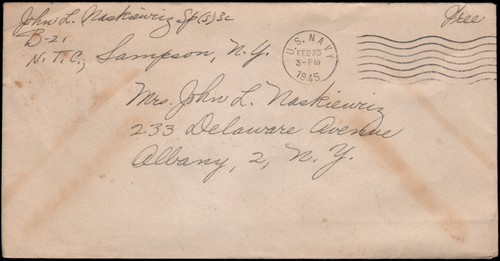 John L. Naskiewicz Sp(S)3c
B-21
N.T.C., Sampson, N.Y.
Free
U.S. NAVY
FEB 23
3-PM
1945
Mrs. John L. Naskiewicz
233 Delaware Avenue
Albany, 2, N.Y.